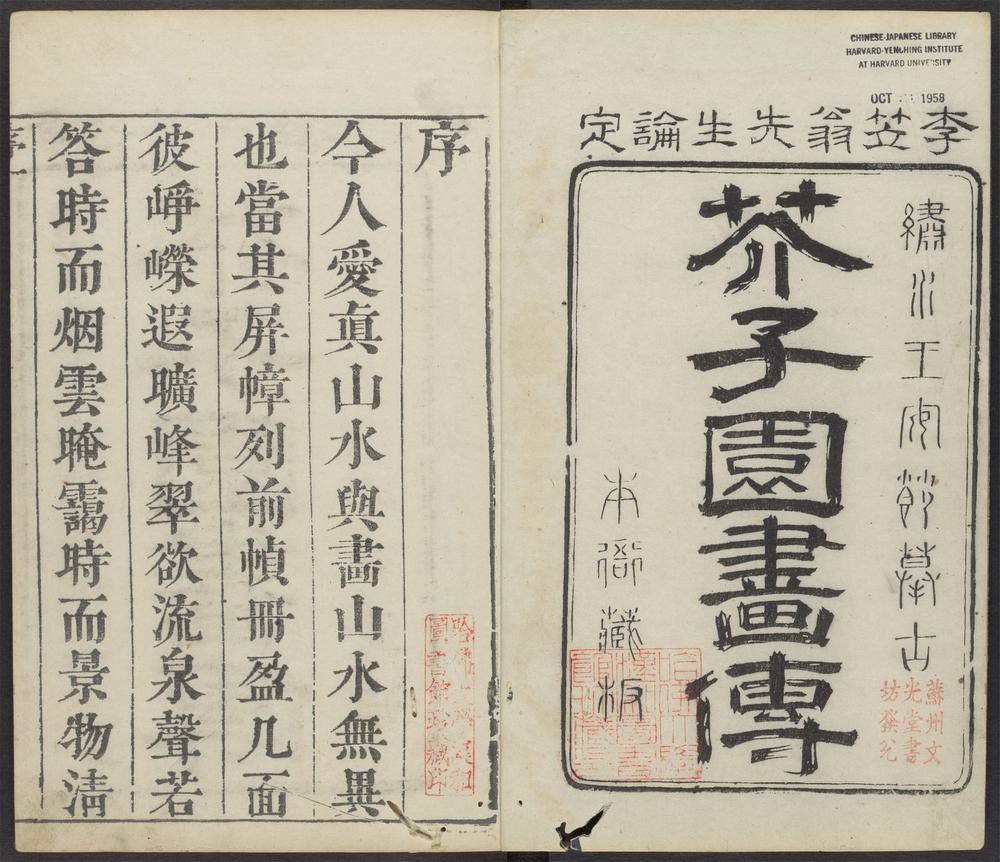 CHINESE-JAPANESE LIBRARY
HARVARD-YENCHING INSTITUTE
AT HARVARD UNIVERSITY
OCT 1958
李笠翁先生論定
繡水王安節摹古
芥子園畫傳
本衙藏板
蘇州文
光堂書
坊發兌
序
今人愛眞山水與畵山水無異
也當其屏幛列前幀冊盈几面
彼崢嶸遐曠峰翠欲流泉聲若
答時而烟雲晻靄時而景物淸
哈佛大學漢和
圖書館珍藏印